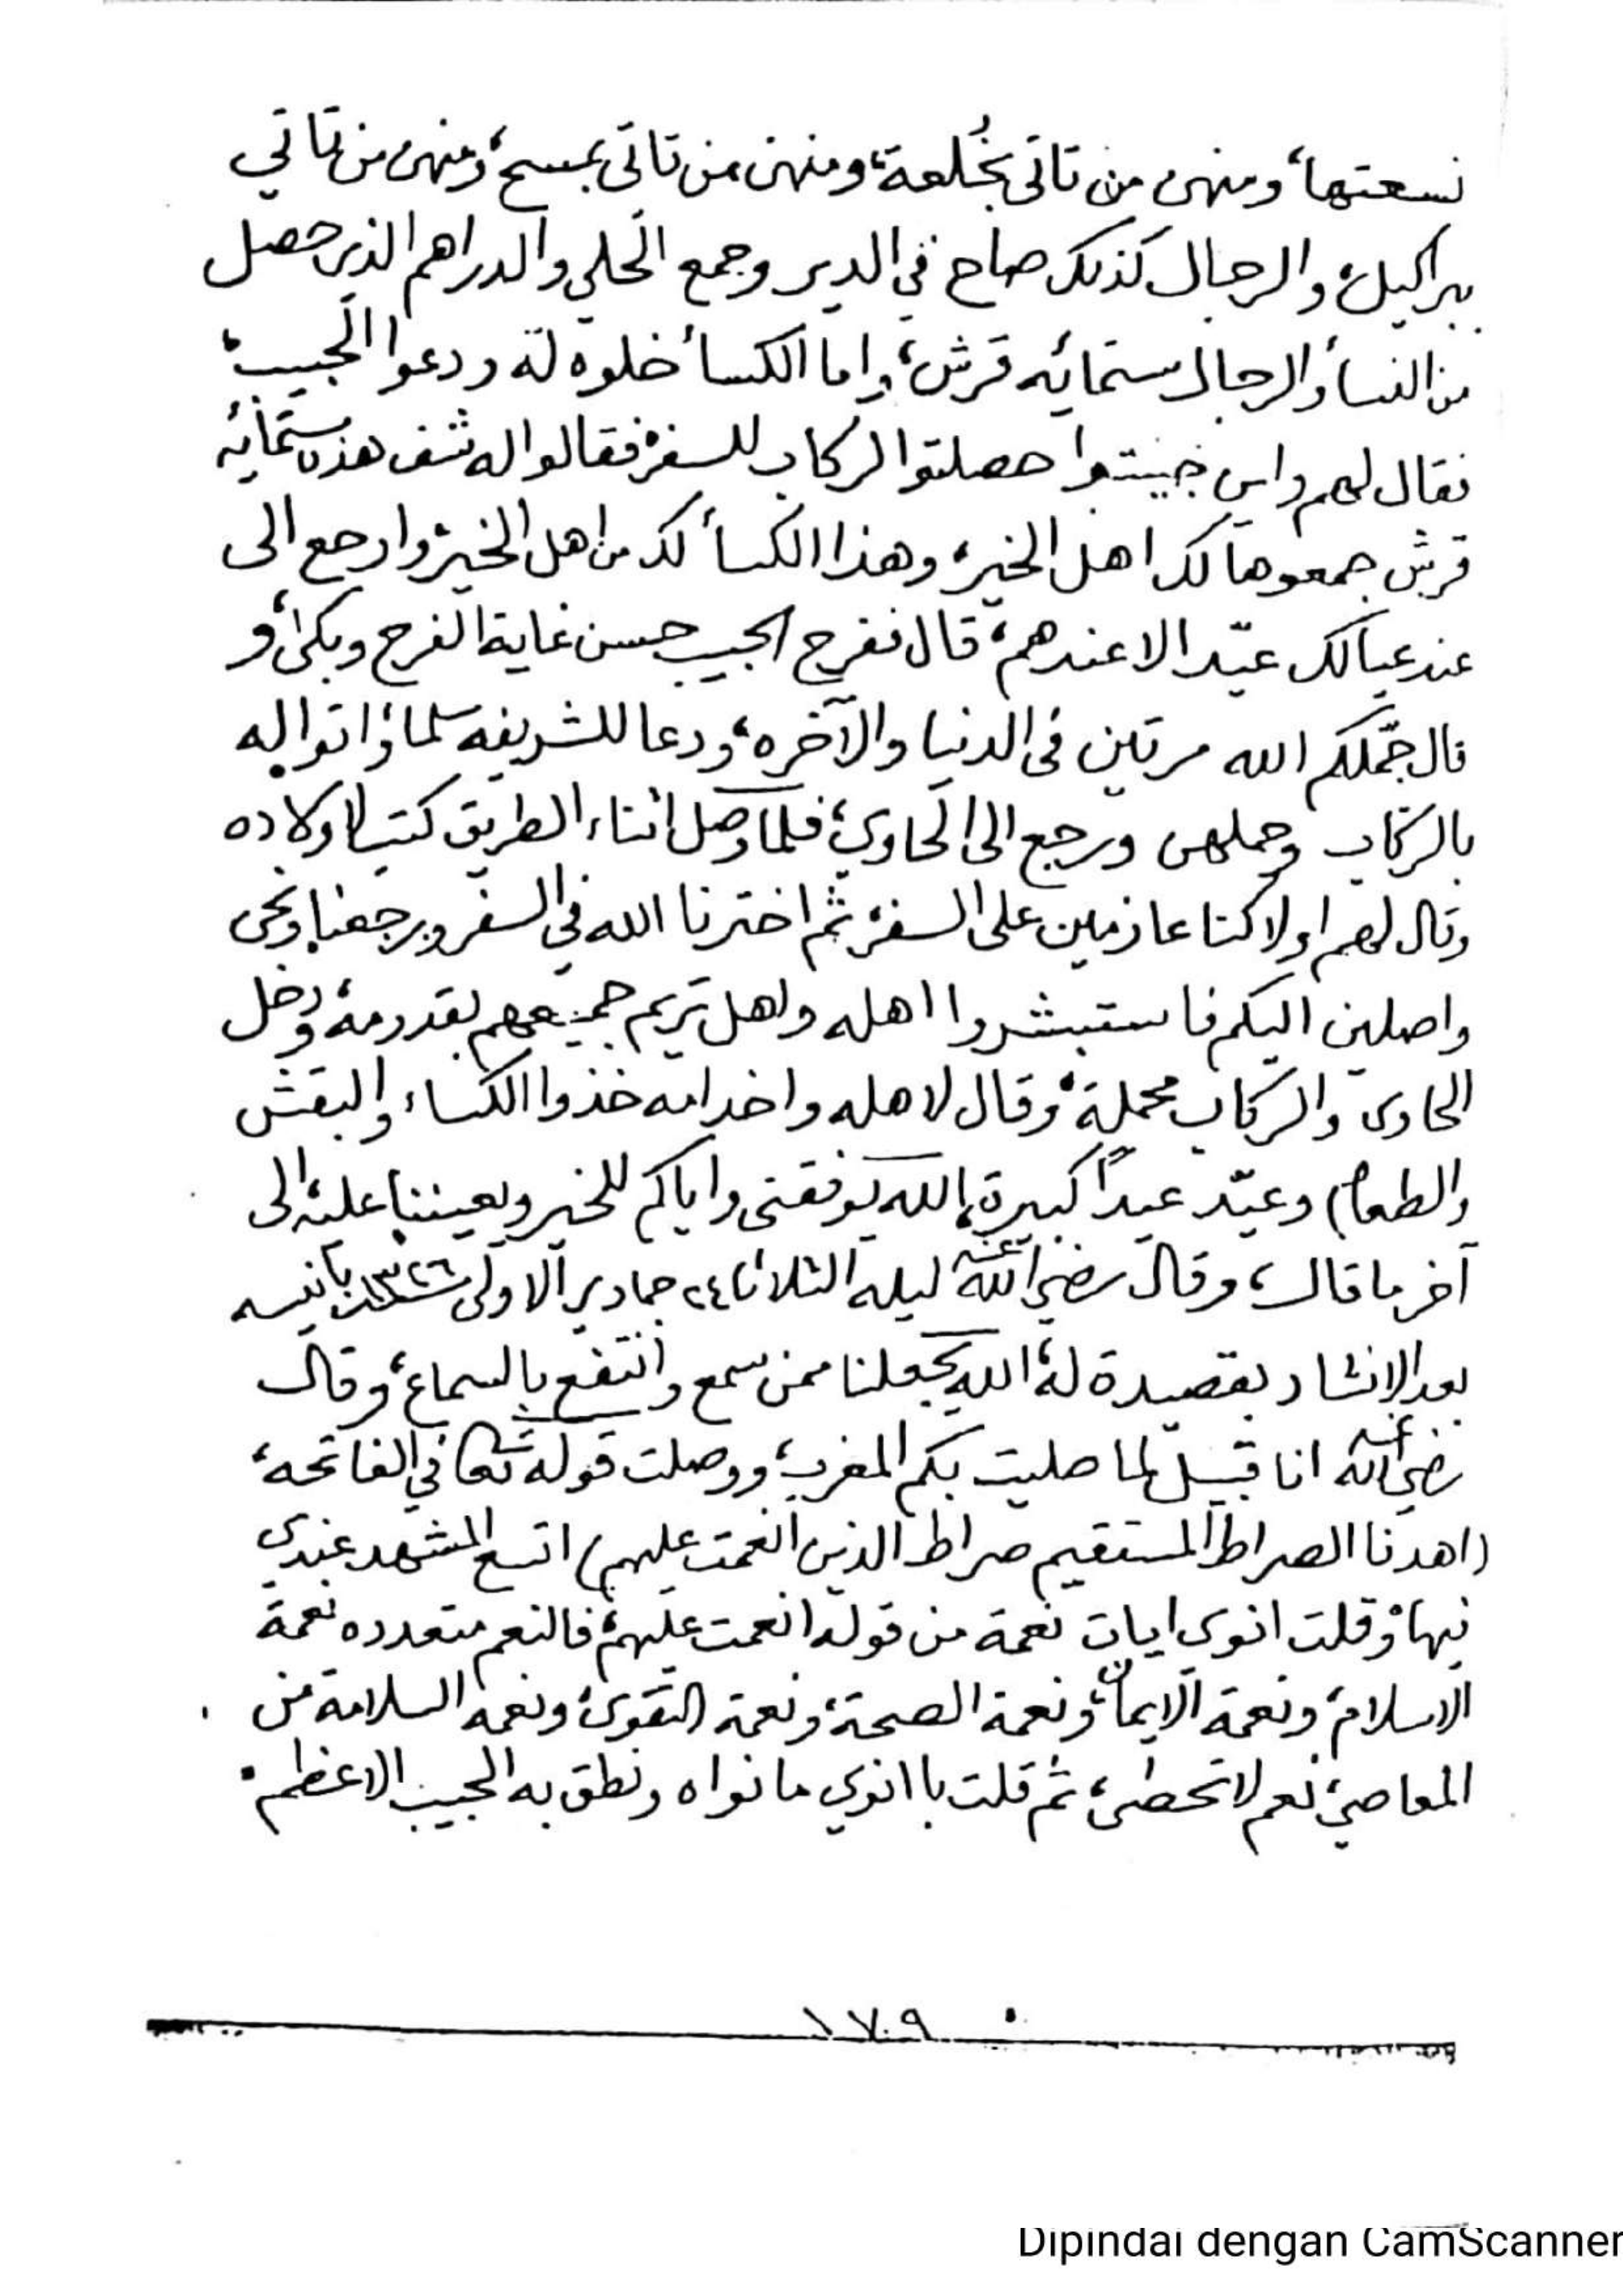 نسعتها، ومنهن من تاتى بخُلعة، ومنهن من تاتى بمسح، ومنهن من تاتي
ببراكيل، والرجال كذلك صاح في الدير وجمع الحلي والدراهم الذي حصل
من النسأ والرجال ستمائه قرش، واما الكسأ خلوه له ودعوا الحبيب،
فقال لهم واين جيتوا حصلتوا الركاب للسفر، فقالوا له شف هذه ستمائه
قرش جمعوها لك اهل الخير، وهذا الكسأ لك من اهل الخير، وارجع الى
عند عيالك عيّد الا عندهم، قال ففرح الحبيب حسن غاية الفرح وبكى، و
قال جمّلكم الله مرتين فى الدنيا والآخره، ودعا للشريفة سلما، واتوا له
بالركاب وحملهن ورجع الى الحاوي، فلما وصل اثناء الطريق كتب لاولاده
وقال لهم اولا كنا عازمين على السفر، ثم اخترنا الله في السفر ورجعنا ونحن
واصلين اليكم فاستبشروا اهله واهل تريم جميعهم بقدومه، ودخل
الحاوى والركاب محملة، وقال لاهله واخدامه خذوا الكساء والبقش
والطعام) وعيّد عيداً كبيرة، الله يوفقنى واياكم للخير ويعيننا عليه، الى
آخر ما قال، وقال رضي الله عنه ليله الثلاثا ٢٤ جمادى الاولى سنة ١٣٢٦ بانيسه
بعد الانشاد بقصيدة له، الله يجعلنا ممن سمع وانتفع بالسماع، وقال
رضي الله عنه انا قبيل لما صليت بكم المغرب، ووصلت قوله تعالى في الفاتحه،
(اهدنا الصراط المستقيم صراط الذين انعمت عليهم) اتسع المشهد عندي
فيها، وقلت انوى ايات نعمة من قوله انعمت عليهم، فالنعم متعدده نعمة
الاسلام، ونعمة الايمان، ونعمة الصحة، ونعمة التقوى، ونعمه السلامة من
المعاصي، نعم لا تحصى، ثم قلت باانوي ما نواه ونطق به الحبيب الاعظم.
١٧٩
Dipindai dengan CamScanner